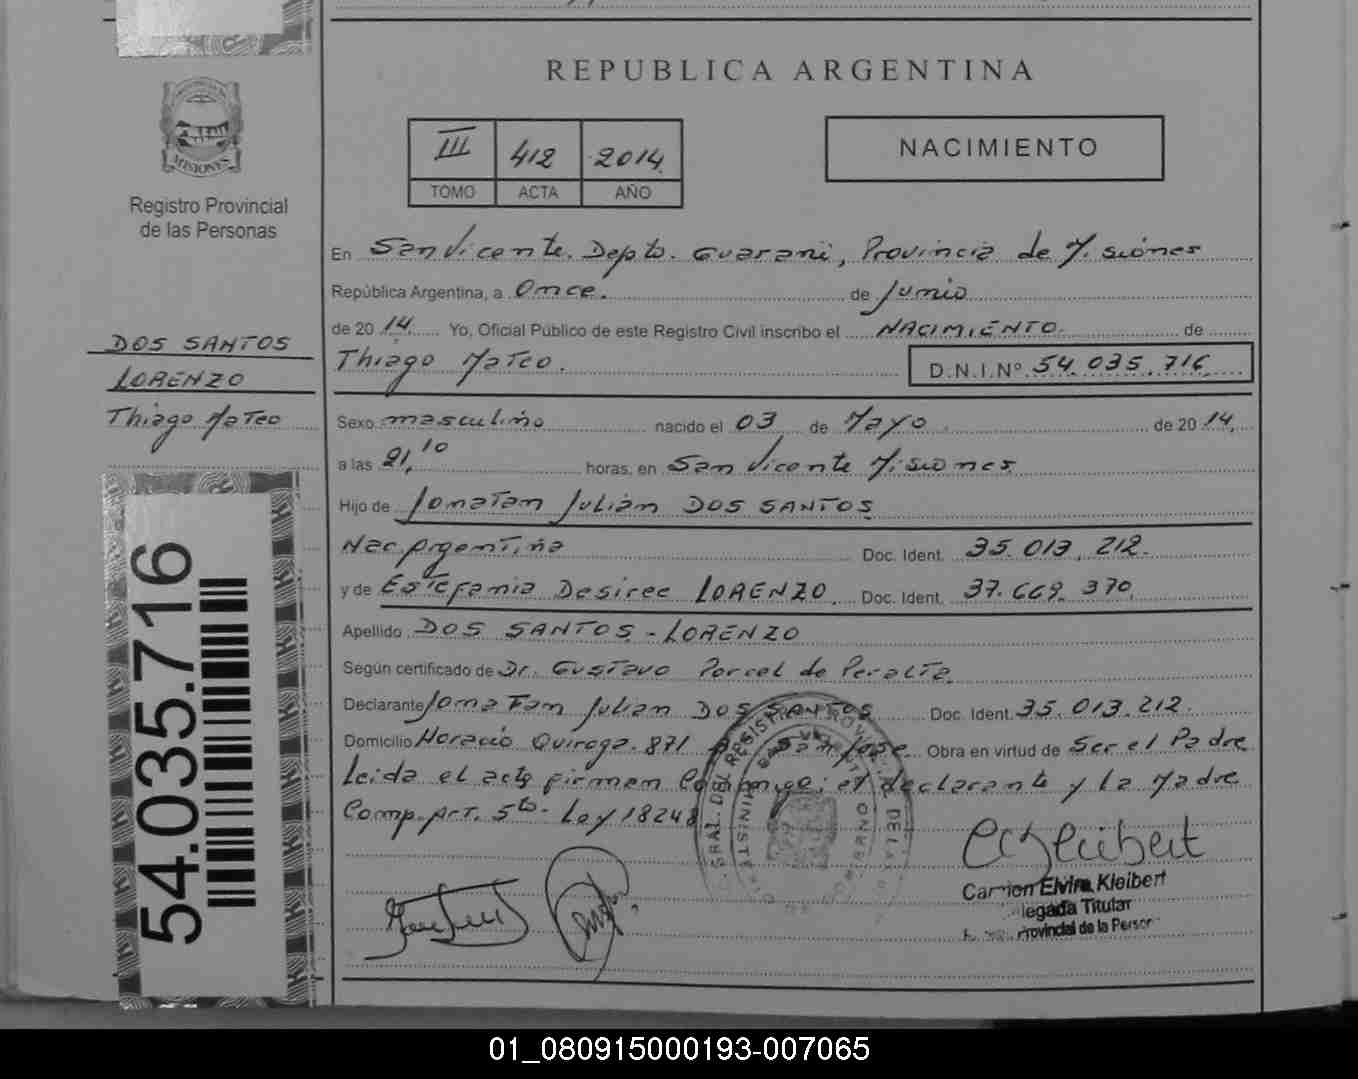 REPUBLICA ARGENTINA
III 412 2014
TOMO ACTA AÑO
NACIMIENTO
MISIONES
Registro Provincial
de las Personas
DOS SANTOS
LORENZO
Thiago Mateo
54.035.716
En San Vicente. Depto. Guarani, Provincia de Misiones
República Argentina, a Once. de Junio
de 2014. Yo, Oficial Público de este Registro Civil inscribo el NACIMIENTO. de
Thiago Mateo. D.N.I.Nº 54.035.716
Sexo masculino nacido el 03 de Mayo de 2014.
a las 21,10 horas, en San Vicente Misiones
Hijo de Jonatan Julián DOS SANTOS
Nac. Argentina Doc. Ident. 35.013.212.
y de Estefania Desiree LORENZO. Doc. Ident. 37.669.370
Apellido DOS SANTOS - LORENZO
Según certificado de Dr. Gustavo Porcel de Peralta.
Declarante Jonatan Julian DOS SANTOS Doc. Ident. 35.013.212.
Domicilio Horacio Quiroga. 871 San Jose Obra en virtud de Ser el Padre
Leida el acta firman Conmigo; el declarante y la Madre
Comp. Art. 5to - Ley 18248
Carmen Elvira Kleibert
legada Titular
Provincial de la Person
01_080915000193-007065